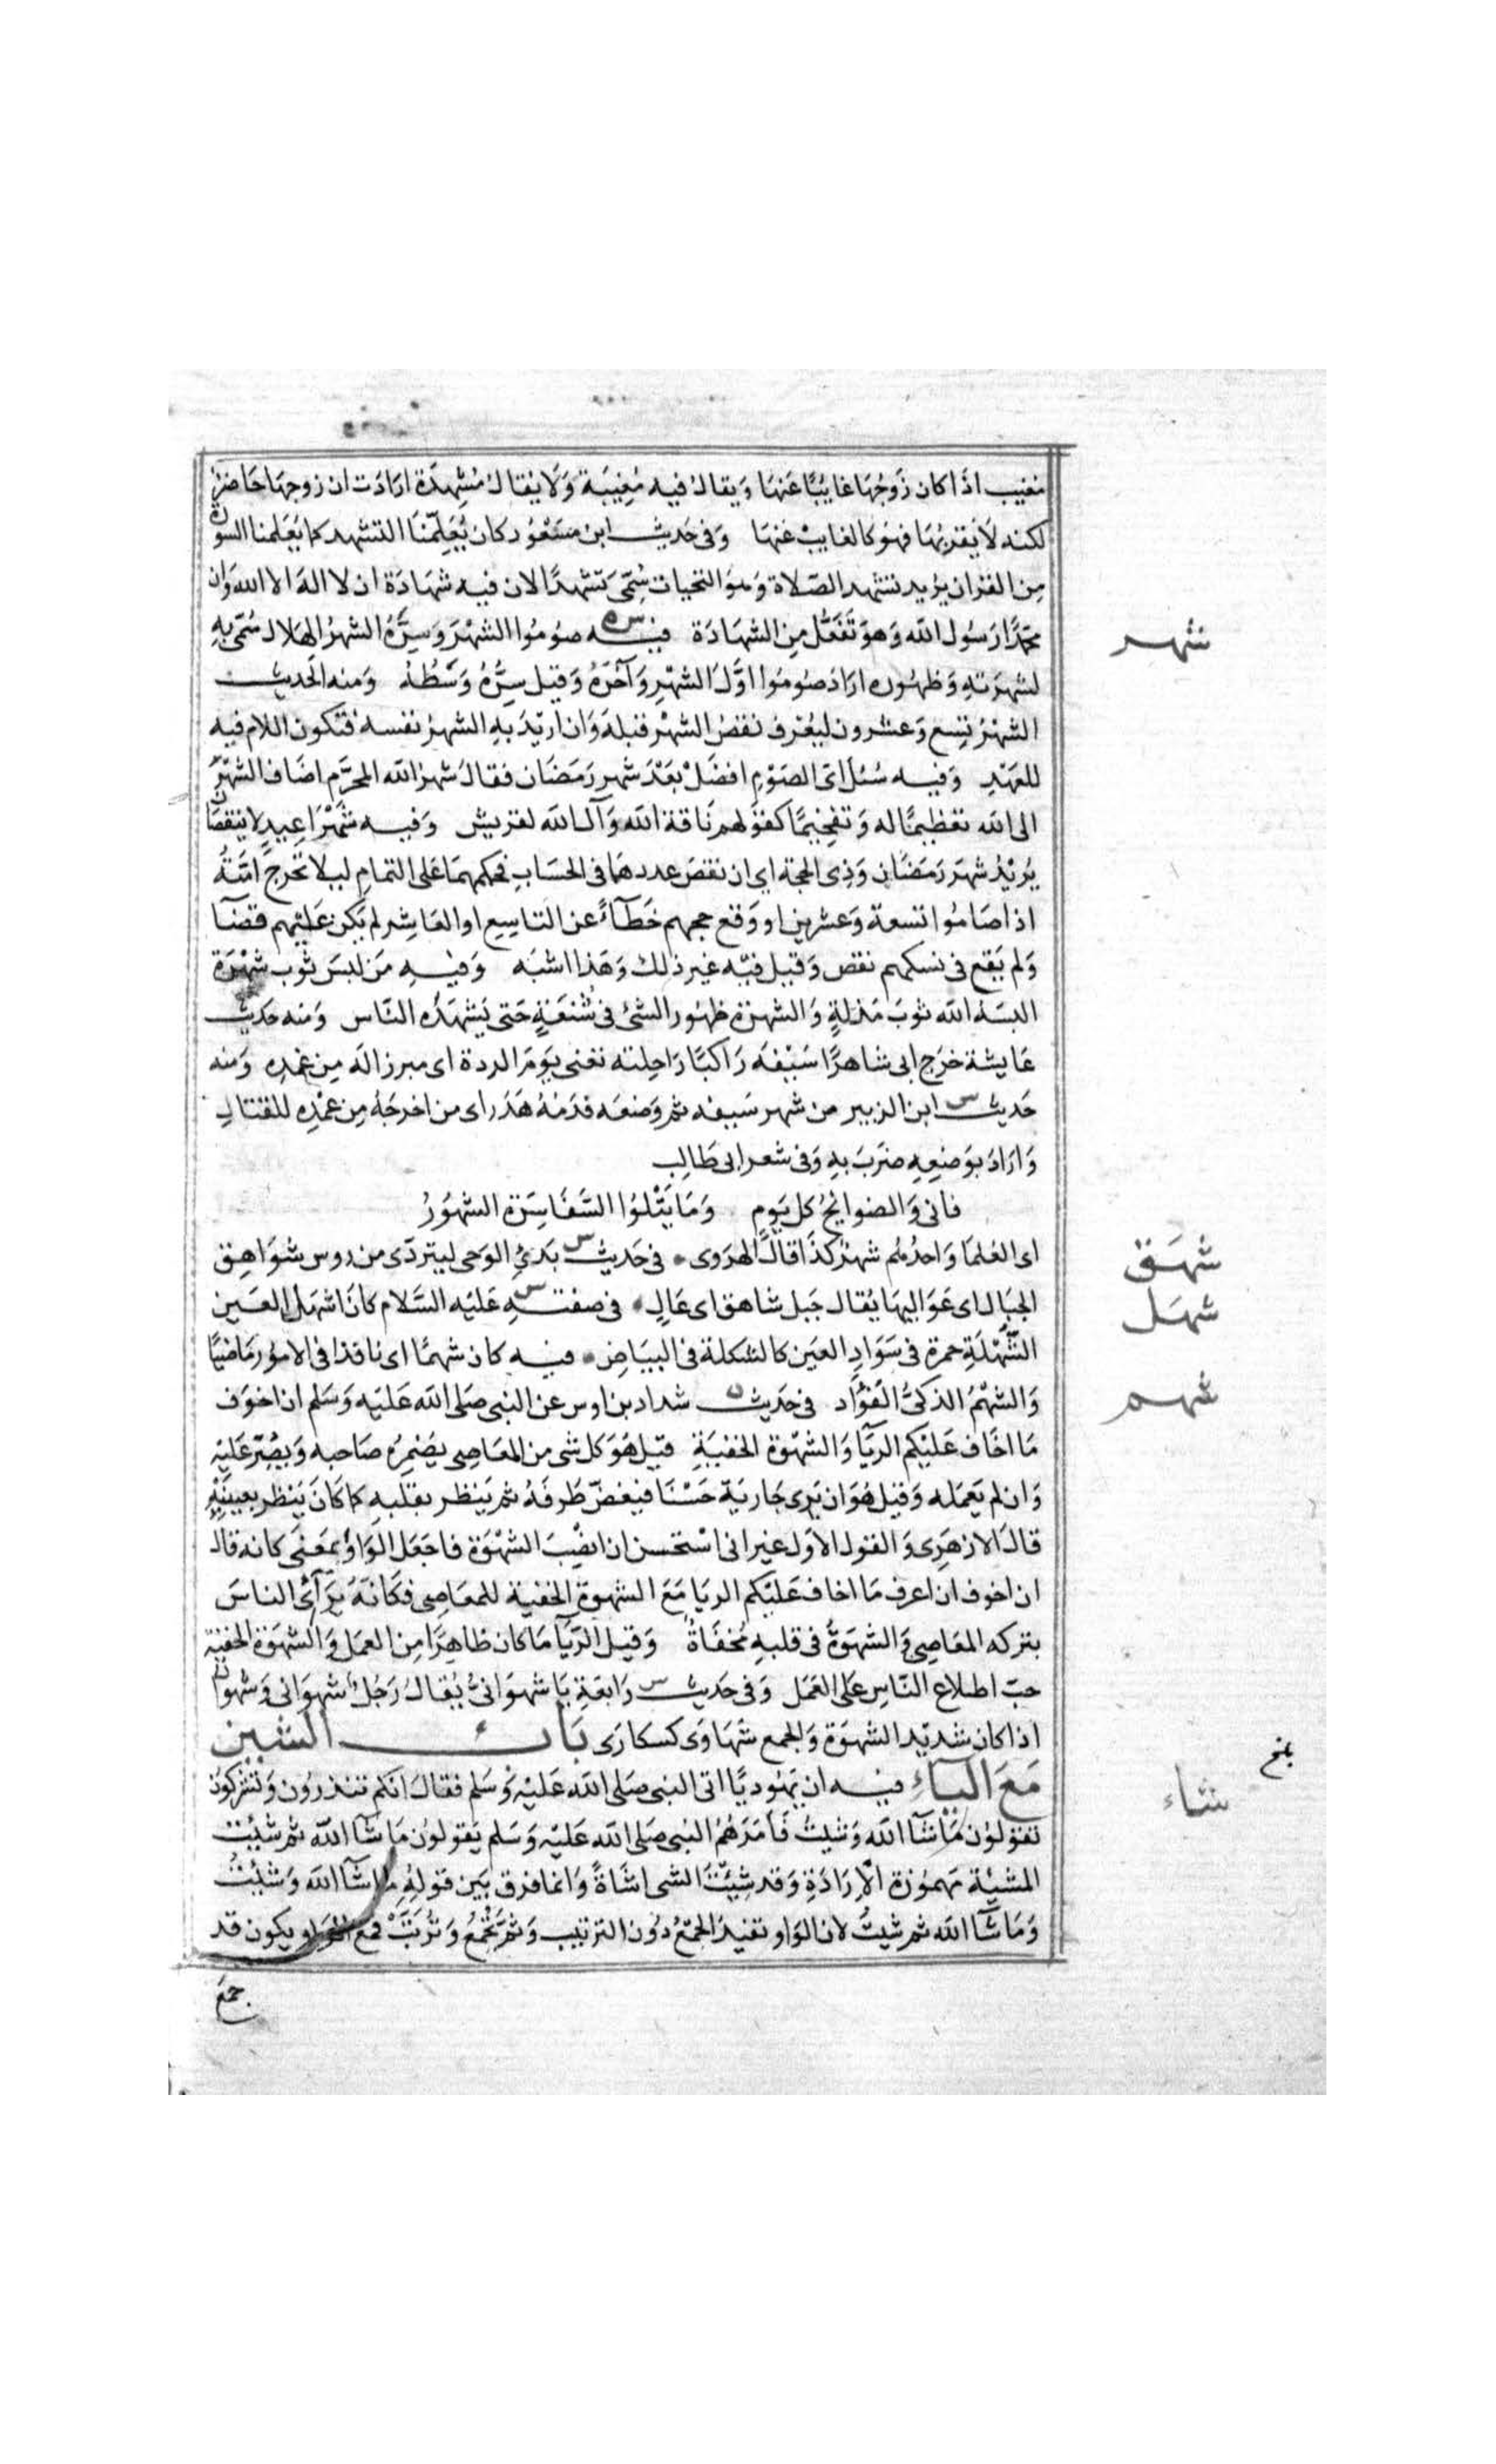 مغيب اذا كان زوجها غايبًا عنها ويقال فيه مغيبة ولا يقال مشهدة ارادت ان زوجها حاضر
لكنه لا يقربها فهو كالغايب عنها وفى حديث ابن مسعود كان يُعلّمنا التشهد كما يعلمنا السورة
من القران يريد تشهد الصلاة وهو التحيات سُمّى تشهدًا لان فيه شهادة ان لا اله الا الله وان
محمدًا رسول الله وهو تَفَعُّل من الشهادة فيه س ه صوموا الشهر وسِرَّهُ الشهرُ الهلال سُمّى به
لشهرته وظهوره اراد صوموا اوّل الشهر وآخره وقيل سِرُّهُ وَسْطُهُ ومنه الحديث
الشهر تسع وعشرون ليعرف نقص الشهر قبله وان اريد به الشهر نفسه فتكون اللام فيه
للعهد وفيه سُئل اى الصوم افضل بعد شهر رمضان فقال شهر الله المحرّم اضاف الشهر
الى الله تعظيمًا له وتفخيمًا كقولهم ناقة الله وآل الله لقريش وفيه شهرا عيد لا ينقصان
يريد شهر رمضان وذى الحجة اى ان نقص عددهما فى الحساب فحكمهما على التمام ليلا تحرج امته
اذا صاموا تسعة وعشرين او وقع حجهم خطآءً عن التاسع او العاشر لم يكن عليهم قضآ
ولم يقع فى نسكهم نقص وقيل فيه غير ذلك وهذا اشبه وفيه من لبس ثوب شهرة
البسه الله ثوب مذلة والشهرة ظهور الشئ فى شُنعَةٍ حتى يشهده الناس ومنه حديث
عايشة خرج ابى شاهرًا سيفه راكبًا راحلته تعنى يوم الردة اى مبرزا له من غمده ومنه
حديث س ابن الزبير من شهر سيفه ثم وضعه فدمه هدر اى من اخرجه من غمده للقتال
واراد بوضعه ضرب به وفى شعر ابى طالب
فانى والضوابح كل يوم وما يتلوا السَّفَاسَرة الشهورُ
اى العلما واحدهم شهر كذا قال الهروى • فى حديث س بدئ الوحى ليتردّى من روس شواهق
الجبال اى عواليها يقال جبل شاهق اى عال • فى صفته س عليه السلام كان اشهل العين
الشهلة حمرة فى سواد العين كالشكلة فى البياض • فيه كان شهمًا اى نافذا فى الامور ماضيًا
والشهم الذكىّ الفؤاد فى حديث ن شداد بن اوس عن النبى صلى الله عليه وسلم ان اخوف
ما اخاف عليكم الريآ والشهوة الخفية قيل هو كل شى من المعاصى يضمره صاحبه ويصرّ عليه
وان لم يعمله وقيل هو ان يرى جارية حسنا فيغضّ طرفه ثم ينظر بقلبه كما كان ينظر بعينه
قال الازهرى والقول الاول غير انى استحسن ان انصب الشهوة فاجعل الواو بمعنى كانه قال
ان اخوف ان اعرف ما اخاف عليكم الريا مع الشهوة الخفية للمعاصى فكانه يرآئى الناس
بتركه المعاصى والشهوة فى قلبه مُخفاةٌ وقيل الريآ ما كان ظاهرًا من العمل والشهوة الخفية
حبّ اطلاع الناس على العمل وفى حديث س رابعة يا شهوانىُّ يقال رجلٌ شهوانى وشهوان
اذا كان شديد الشهوة والجمع شهاوى كسكارى باب الشين
مع الياء فيه ان يهوديًّا اتى النبى صلى الله عليه وسلم فقال انكم تنذرون وتشركون
تقولون ما شآ الله وشيتُ فامرهم النبى صلى الله عليه وسلم يقولون ما شآ الله ثم شيئت
المشيّة مهموزة الارادة وقد شيّتَ الشى اشاةً وانما فرق بين قوله ما شآ الله وشيئتُ
وما شآ الله ثم شيتُ لان الواو تفيد الجمع دون الترتيب وثم تجمع وترتب فمع الواو يكون قد
جمع
شهر
شهق
شهل
شهم
شاء